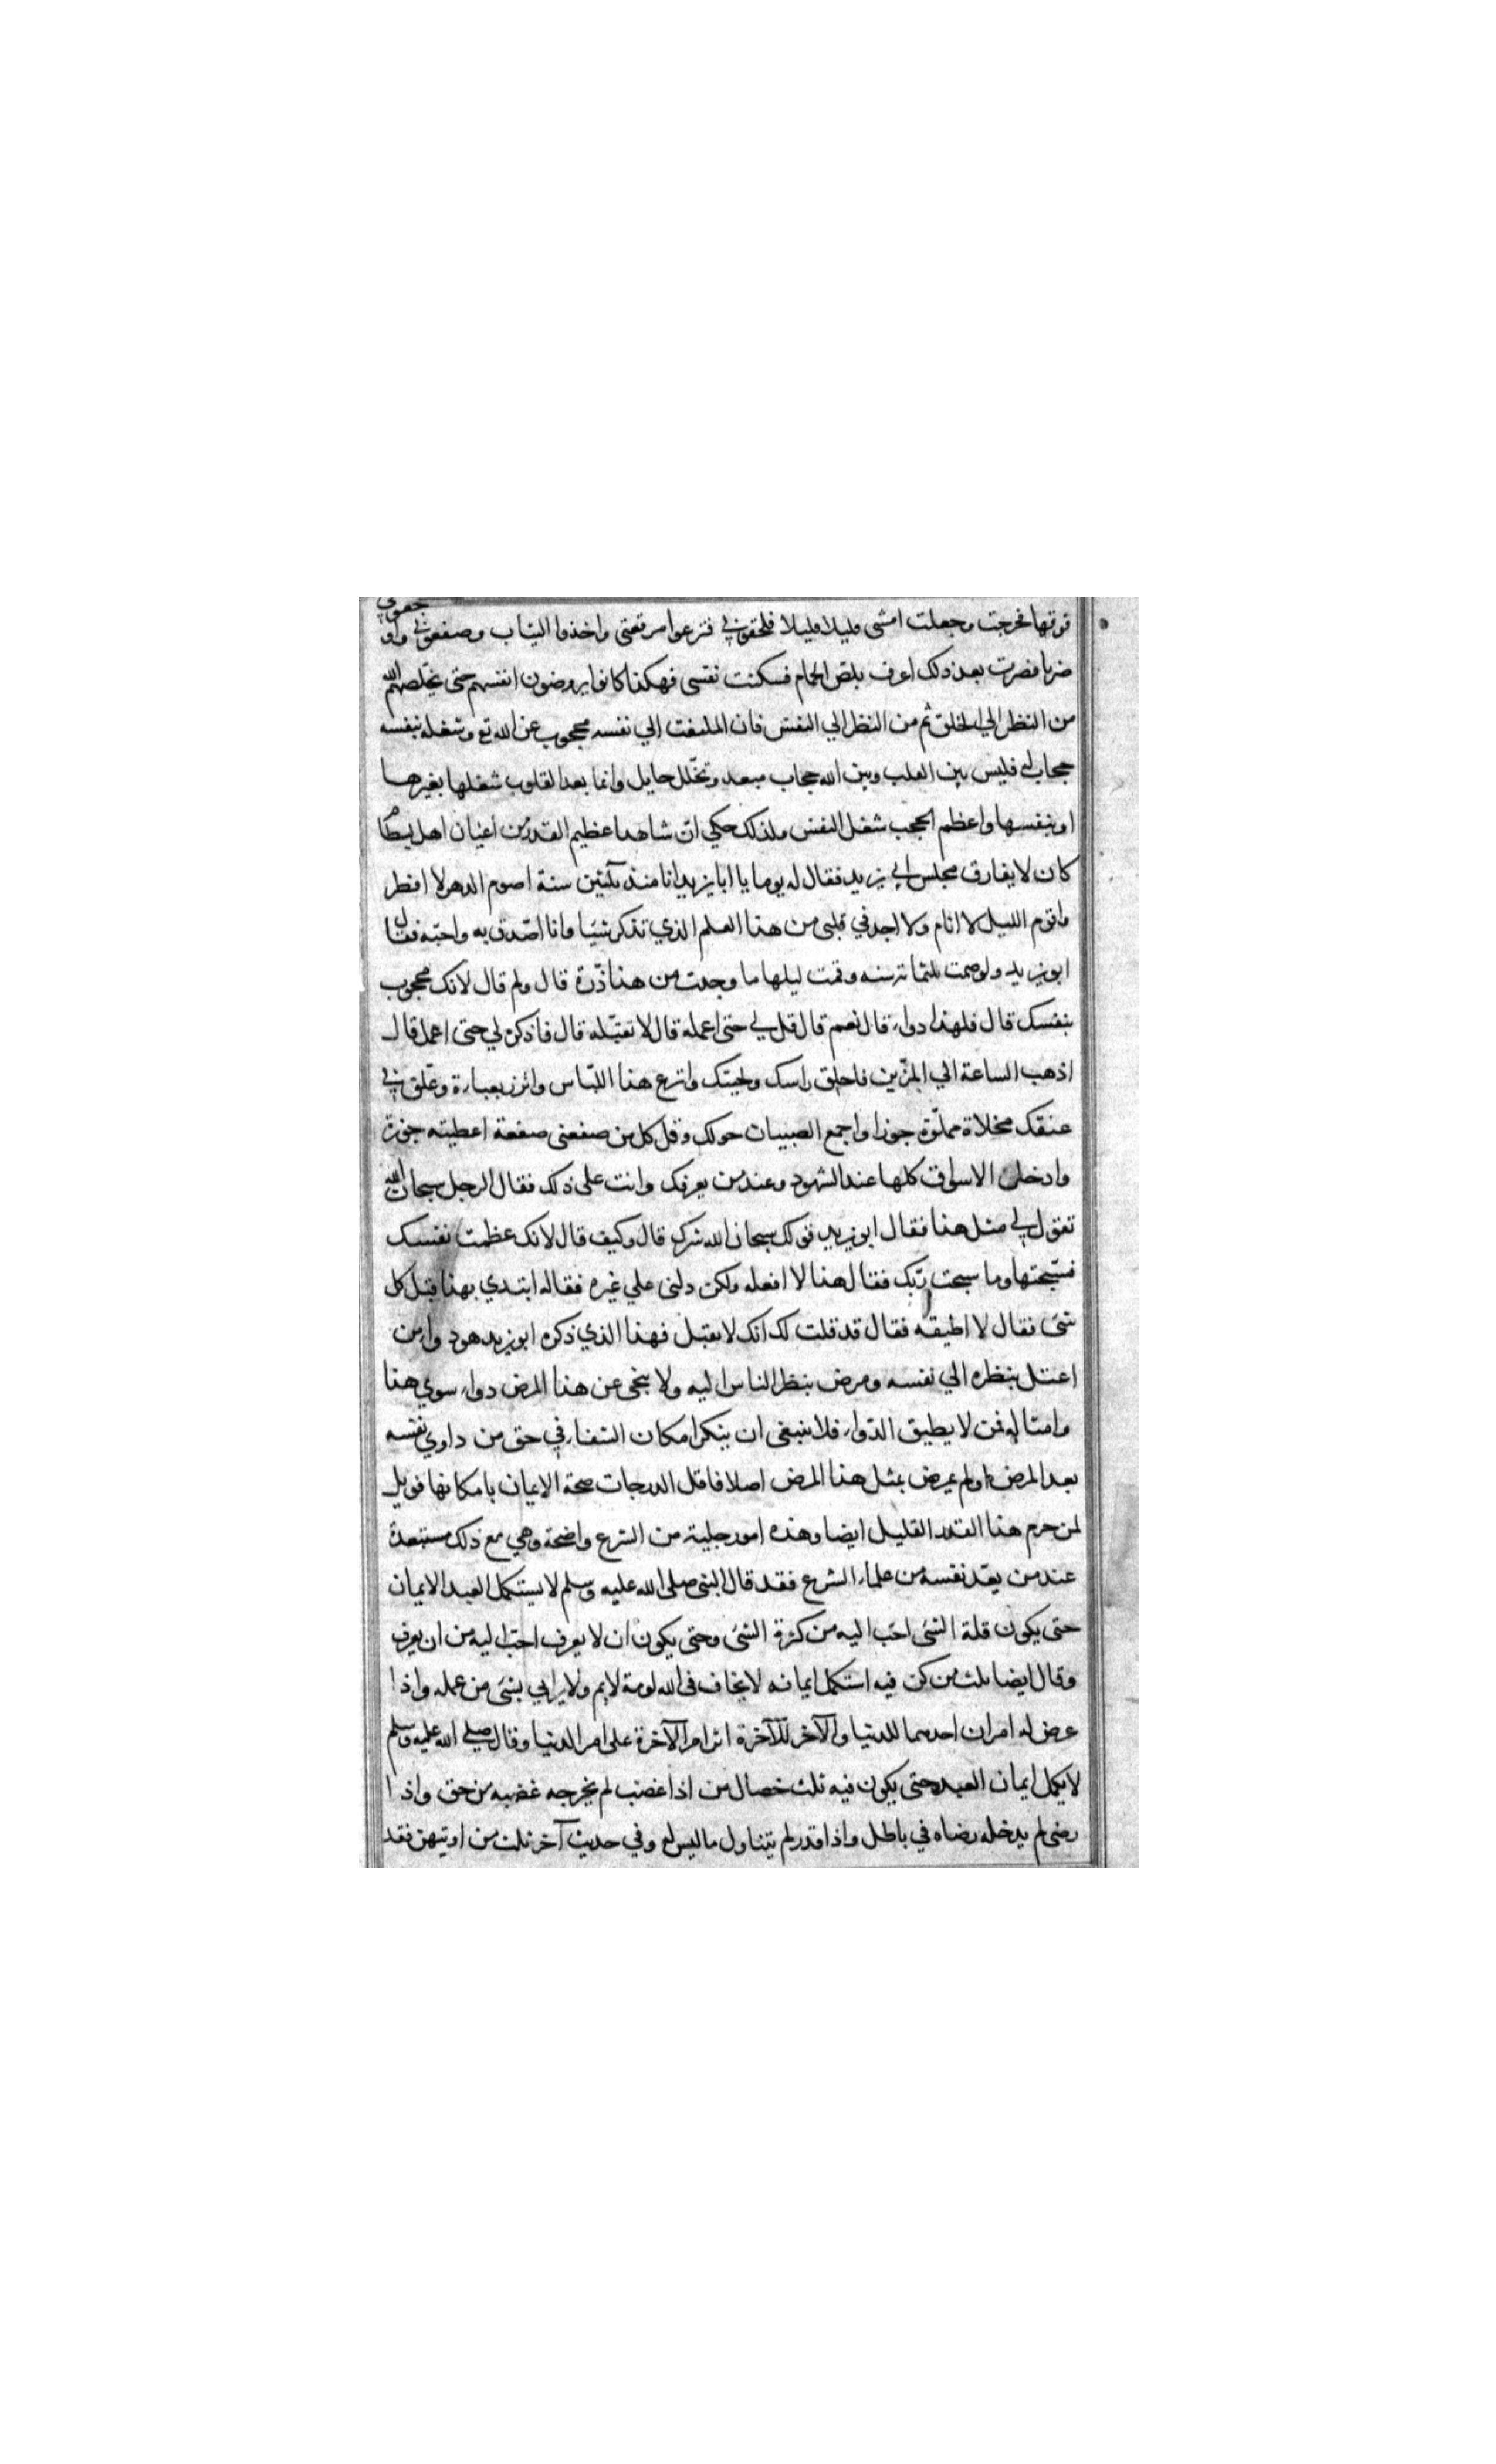 فوقها فخرجت وجعلت امشى قليلا قليلا فلحقوني فنزعوا مرقعتى واخذوا الثياب وصفعوني واوجعوني
ضربا فصرت بعد ذلك اعرف بلص الحمام فسكنت نفسى فهكذا كانوا يروضون انفسهم حتى يخلصهم الله
من النظر الي الخلق ثم من النظر الي النفس فان الملتفت الي نفسه محجوب عن الله تع وشغله بنفسه
حجاب له فليس بين القلب وبين الله حجاب مبعد وتخلل حايل وانما بعد القلوب شغلها بغيرها
او بنفسها واعظم الحجب شغل النفس ولذلك حكي ان شاهدا عظيم القدر من اعيان اهل بسطام
كان لا يفارق مجلس ابي يزيد فقال له يوما يا ابا يزيد انا منذ ثلثين سنة اصوم الدهر لا افطر
واقوم الليل لا انام ولا اجد في قلبى من هذا العلم الذي تذكر شيئا وانا اصدق به واحبه فقال
ابو يزيد ولو صمت ثلثمائة سنه وقمت ليلها ما وجدت من هذا ذرة قال ولم قال لانك محجوب
بنفسك قال فلهذا دواء قال نعم قال قل لي حتى اعمله قال لا تقبله قال فاذكره لي حتى اعمل قال
اذهب الساعة الي المزين فاحلق راسك ولحيتك وانزع هذا اللباس واتزر بعباءة وعلق في
عنقك مخلاة مملوة جوزا واجمع الصبيان حولك وقل كل من صفعنى صفعة اعطيته جوزة
وادخل الاسواق كلها عند الشهود وعند من يعرفك وانت على ذلك فقال الرجل سبحان الله
تقول لي مثل هذا فقال ابو يزيد قولك سبحان الله شرك قال وكيف قال لانك عظمت نفسك
فسبحتها وما سبحت ربك فقال هذا لا افعله ولكن دلنى علي غيره فقال ابتدي بهذا قبل كل
شئ فقال لا اطيقه فقال قد قلت لك انك لا تقبل فهذا الذي ذكره ابو يزيد هو دواء من
اعتل بنظره الي نفسه ومرض بنظر الناس اليه ولا ينجى عن هذا المرض دواء سوي هذا
وامثاله فمن لا يطيق الدواء فلا ينبغى ان ينكر امكان الشفاء في حق من داوي نفسه
بعد المرض او لم يمرض بمثل هذا المرض اصلا فاقل الدرجات صحة الايمان بامكانها فويل
لمن حرم هذا القدر القليل ايضا وهذه امور جلية من الشرع واضحة وهي مع ذلك مستبعدة
عند من يعد نفسه من علماء الشرع فقد قال النبى صلى الله عليه وسلم لا يستكمل العبد الايمان
حتى يكون قلة الشئ احب اليه من كثرة الشئ وحتى يكون ان لا يعرف احب اليه من ان يعرف
وقال ايضا ثلث من كن فيه استكمل ايمانه لا يخاف فى الله لومة لايم ولا يرايي بشئ من عمله واذا
عرض له امران احدهما للدنيا والآخر للآخرة اثر امر الآخرة على امر الدنيا وقال صلي الله عليه وسلم
لا يكمل ايمان العبد حتى يكون فيه ثلث خصال من اذا غضب لم يخرجه غضبه من حق واذا
رضى لم يدخله رضاه في باطل واذا قدر لم يتناول ما ليس له وفي حديث آخر ثلث من اوتيهن فقد